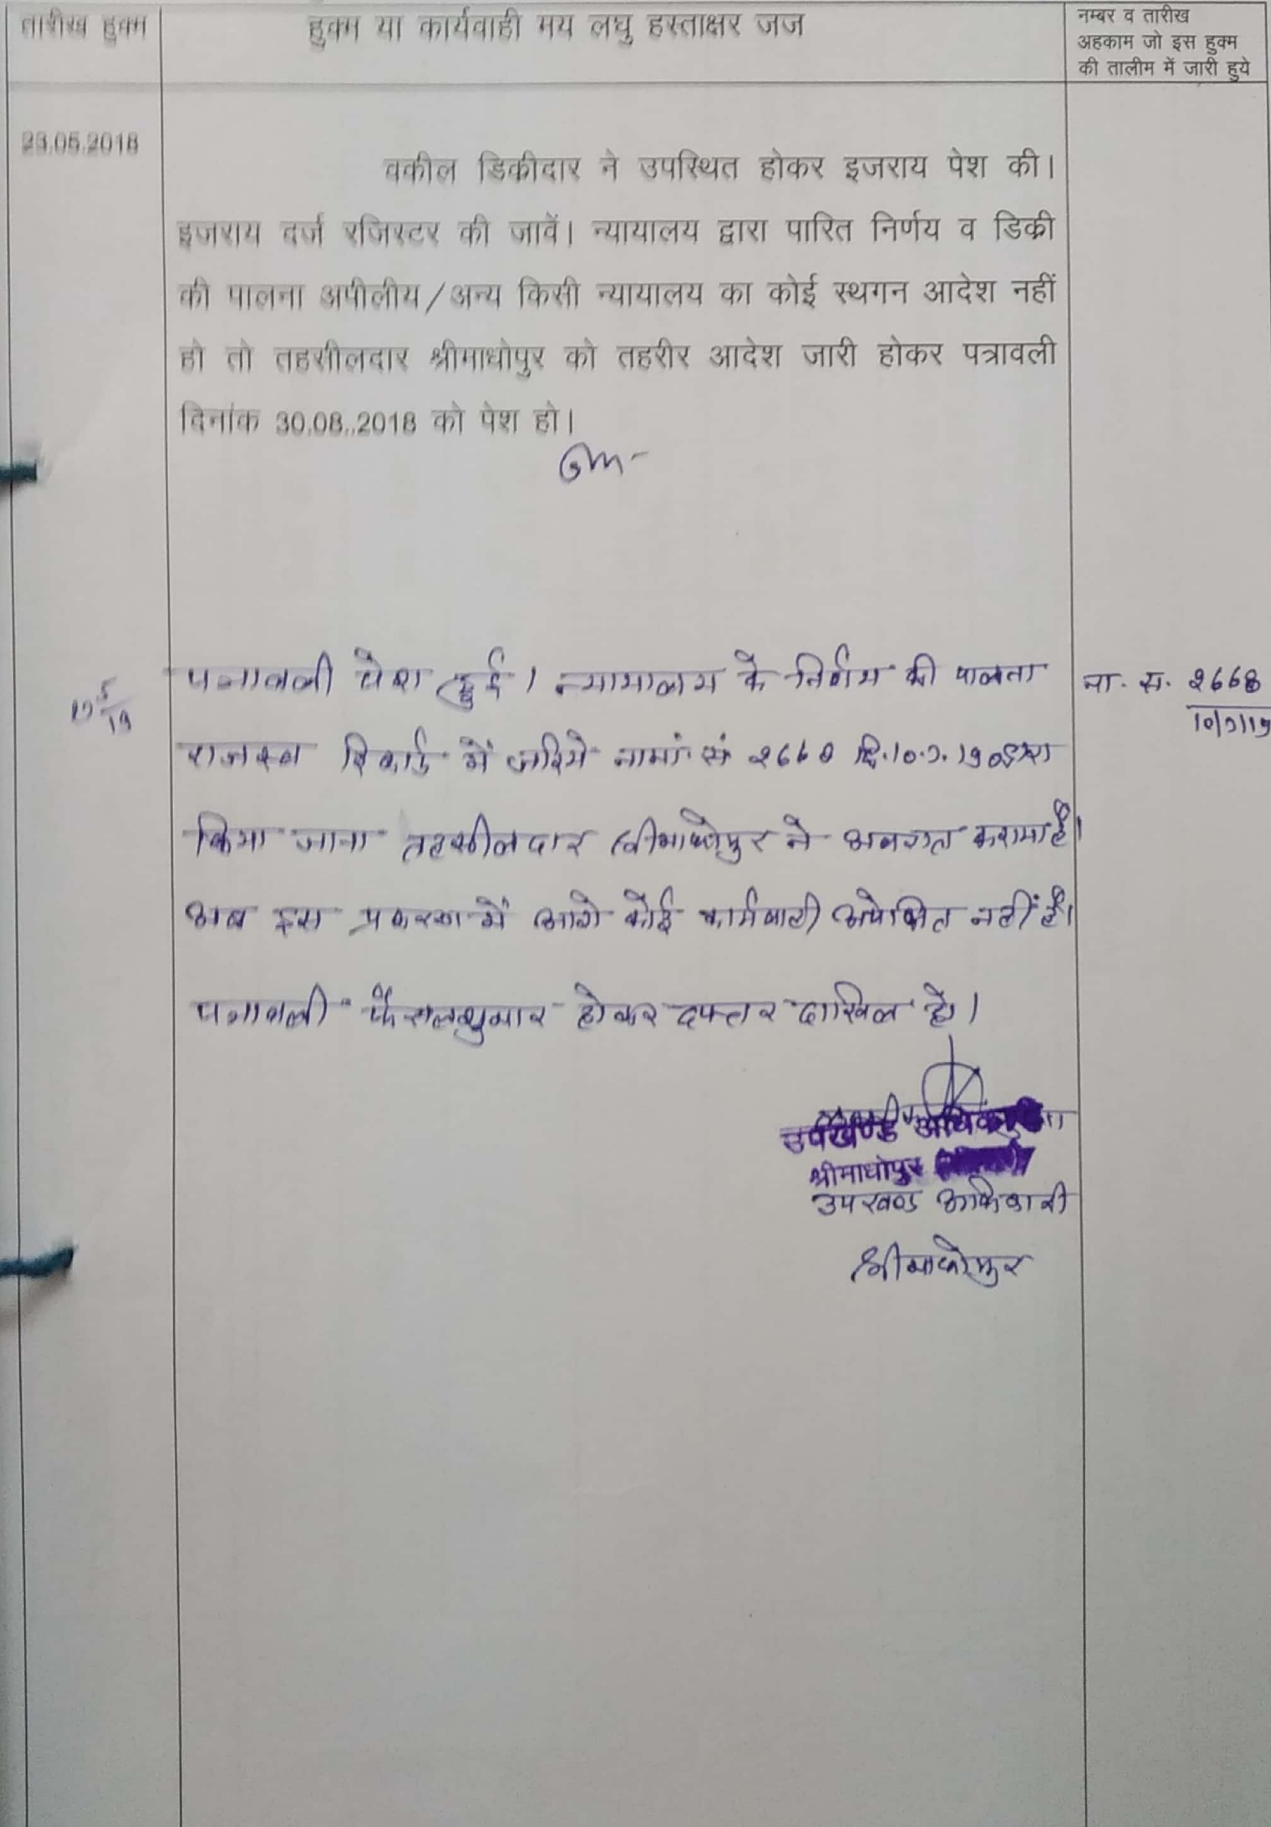 तारीख हुक्म
हुक्म या कार्यवाही मय लघु हस्ताक्षर जज
नम्बर व तारीख
अहकाम जो इस हुक्म
की तालीम में जारी हुये
23.05.2018
वकील डिकीदार ने उपस्थित होकर इजराय पेश की।
इजराय दर्ज रजिस्टर की जावें। न्यायालय द्वारा पारित निर्णय व डिक्री
की पालना अपीलीय/अन्य किसी न्यायालय का कोई स्थगन आदेश नहीं
हो तो तहसीलदार श्रीमाधोपुर को तहरीर आदेश जारी होकर पत्रावली
दिनांक 30.08..2018 को पेश हो।
पत्रावली पेश हुई। न्यायालय के निर्णय की पालना
ना. स. 2668
राजस्व रिकार्ड में जरिये नामां सं
किया जाना तहसीलदार श्रीमाधोपुर ने अवगत कराया है।
अब इस प्रकरण में आगे कोई कार्यवाही अपेक्षित नहीं है।
पत्रावली फैसलशुमार होकर दफ्तर दाखिल हो।
उपखण्ड
श्रीमाधोपुर
उपखण्ड अधिकारी
श्रीमाधोपुर